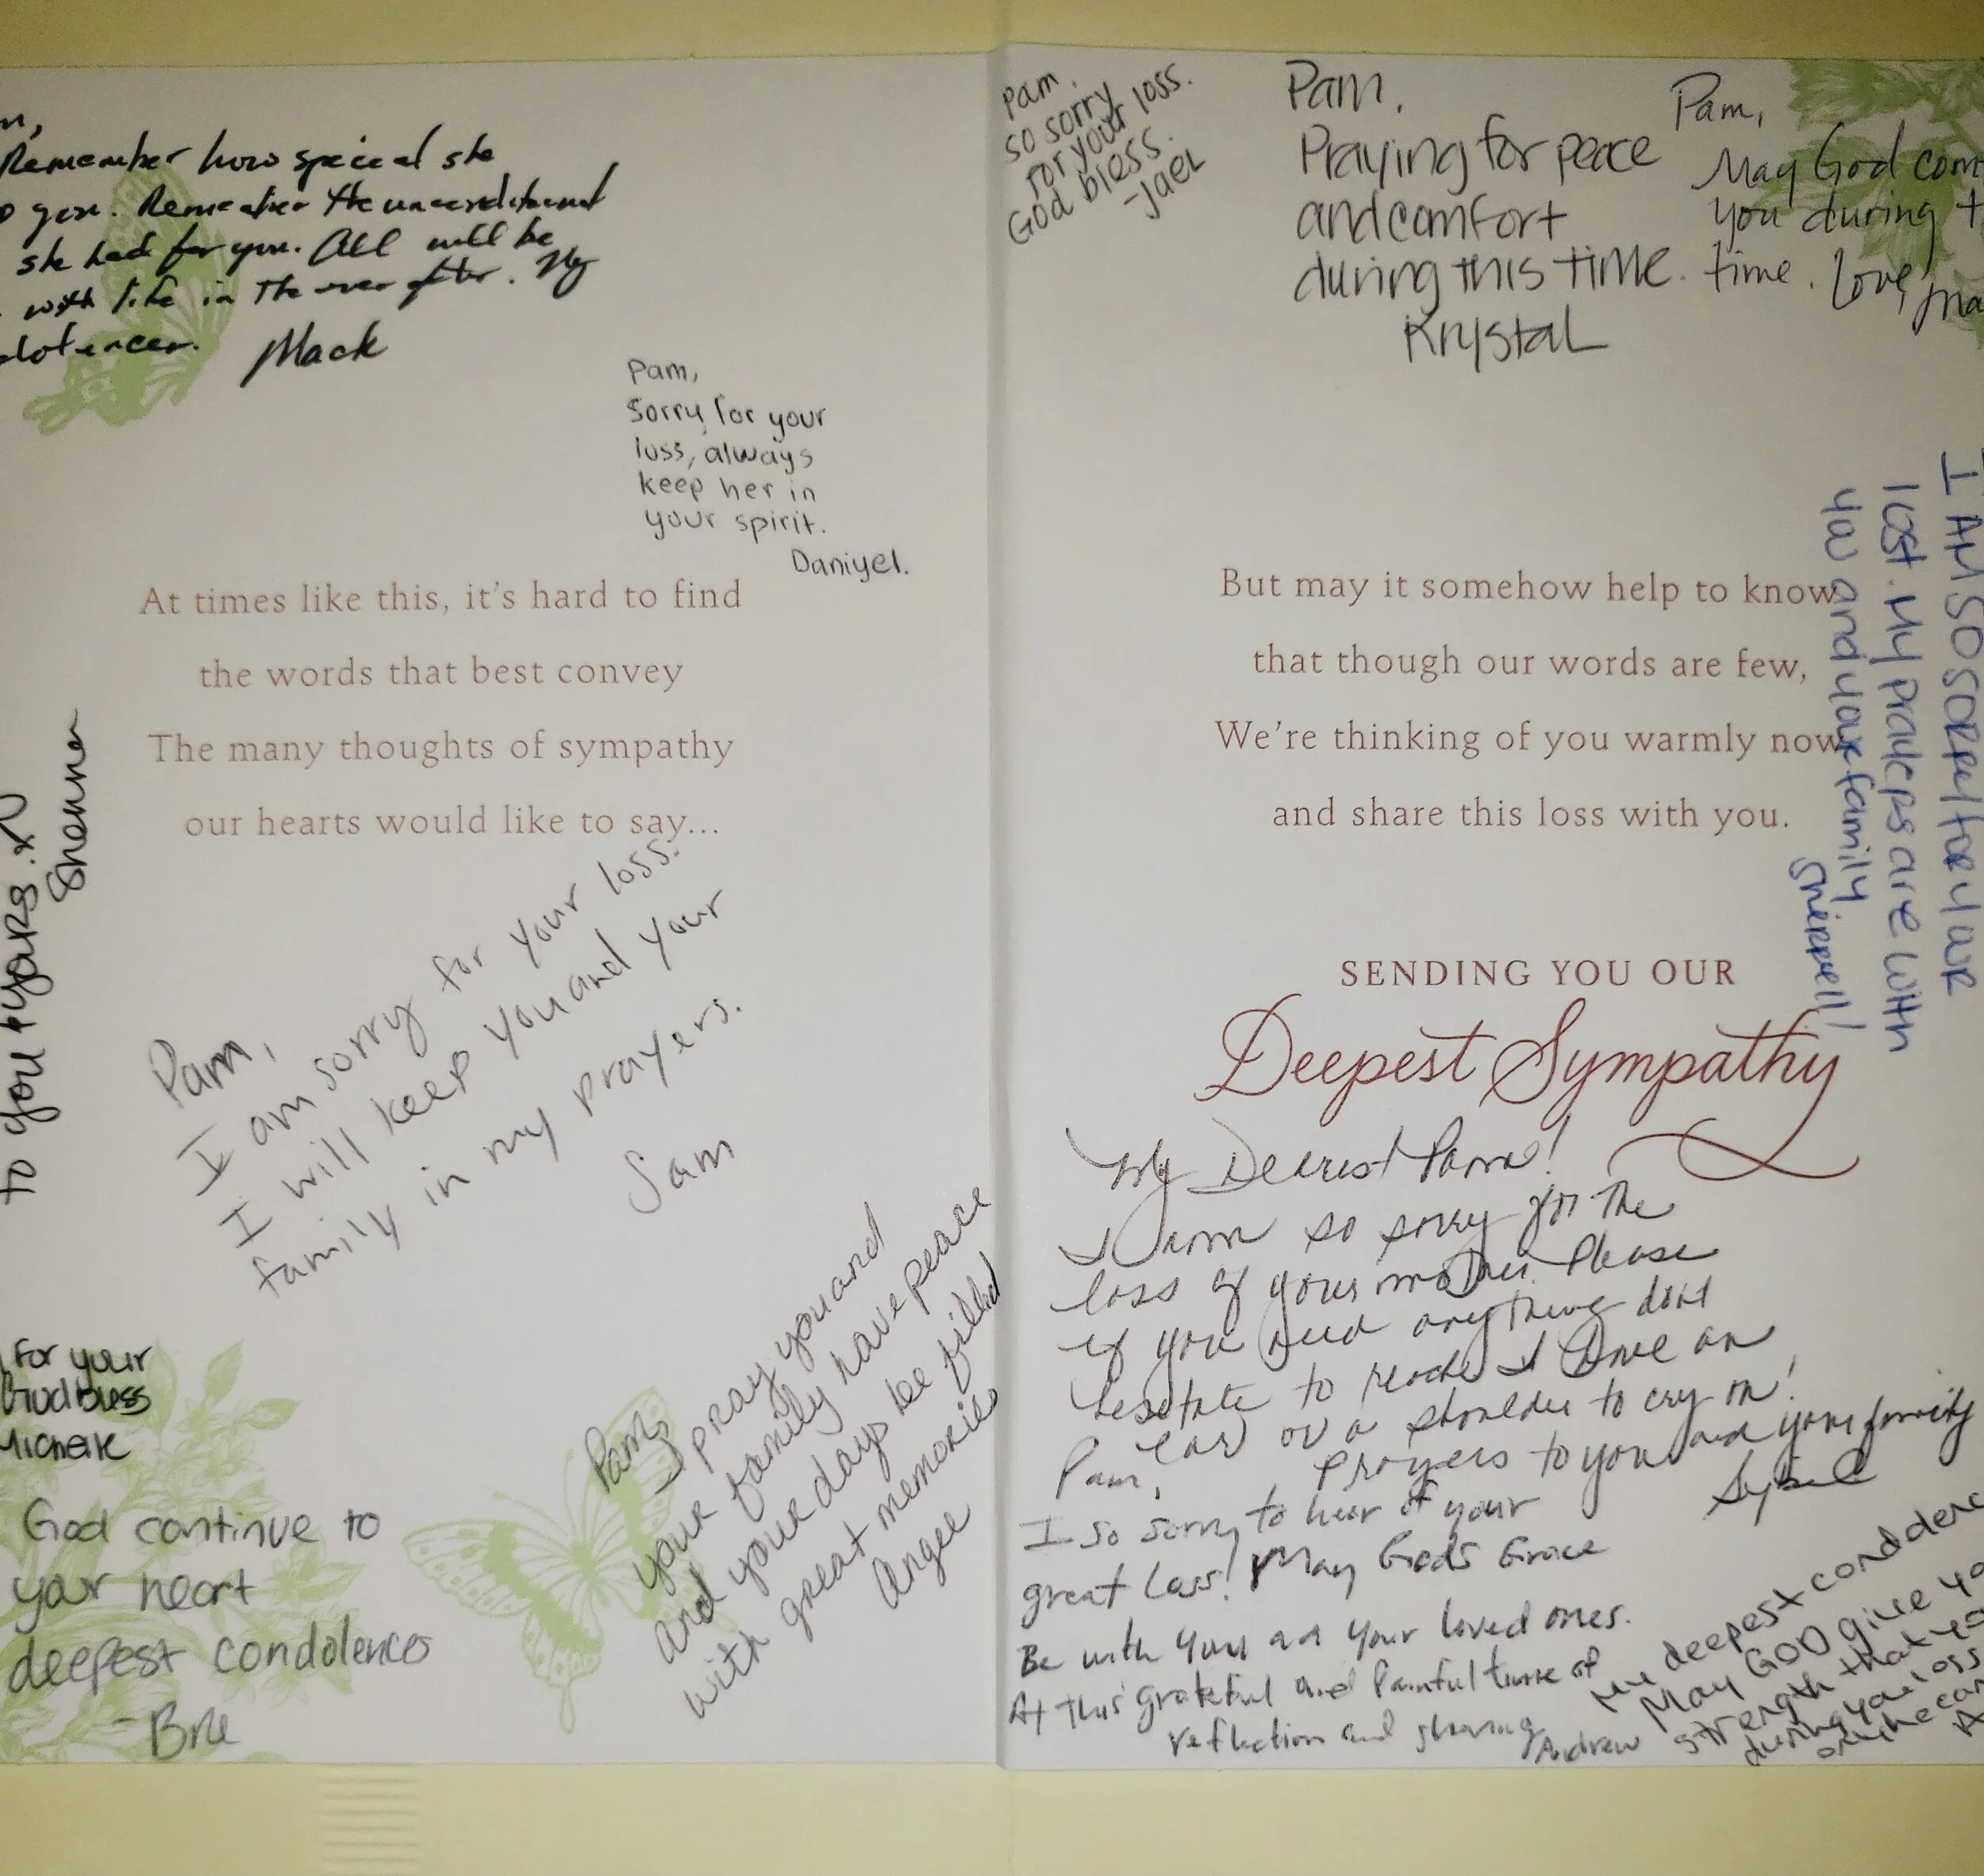 Remember how special she
you. Remember the unconditional
she had for you. All will be
with life in the ever after. My
Mack
Pam,
Sorry for your
loss, always
keep her in
your spirit.
Daniyel.
At times like this, it's hard to find
the words that best convey
The many thoughts of sympathy
our hearts would like to say...
to you & yours.
Pam,
I am sorry for your loss.
I will keep you and your
family in my prayers.
Sam
for your
God bless
Michele
God continue to
your heart
deepest condolences
-Bre
Pam,
I pray you and
your family have peace
and your days be filled
with great memories
Angee
Pam,
so sorry
for your loss.
God bless.
-Jael
Pam,
Praying for peace
and comfort
during this time.
Krystal
Pam,
May God
you during
time. Love,
I AM SO SORRY FOR YOUR
lost. My prayers are with
you and your family
Sherrell!
But may it somehow help to know
that though our words are few,
We're thinking of you warmly now
and share this loss with you.
SENDING YOU OUR
Deepest Sympathy
My Dearest Pam!
I am so sorry for the
loss of your mother. Please
if you need anything dont
hesitate to reach I have an
ear or a shoulder to cry on!
Prayers to you and your family
Sybil
Pam,
I so sorry to hear of your
great Loss! May Gods Grace
Be with you as your loved ones.
At this grateful and Painful time of
reflection and sharing
Andrew
My deepest
May GOD give
strength that
during your loss
only he can